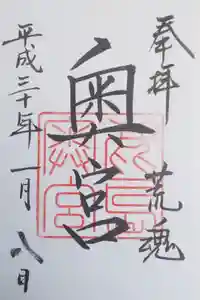 奉拝 荒魂
奥宮
平成三十年一月八日